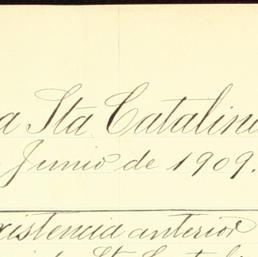 a Sta Catalin
Junio de 1909.
xistencia anterior